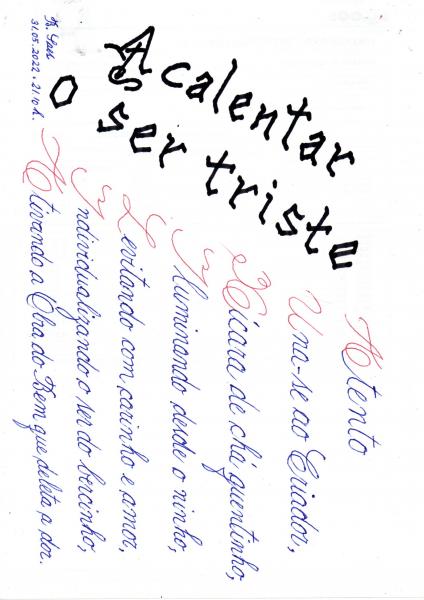 Acalentar
o ser triste
Atento
Una-se ao Criador,
Xícara de chá quentinho,
Iluminando desde o ninho,
Levitando com carinho e amor,
Individualizando o ser do bercinho,
Ativando a Obra do Bem que deleta a dor.
31.05.2022, 21:10 h.